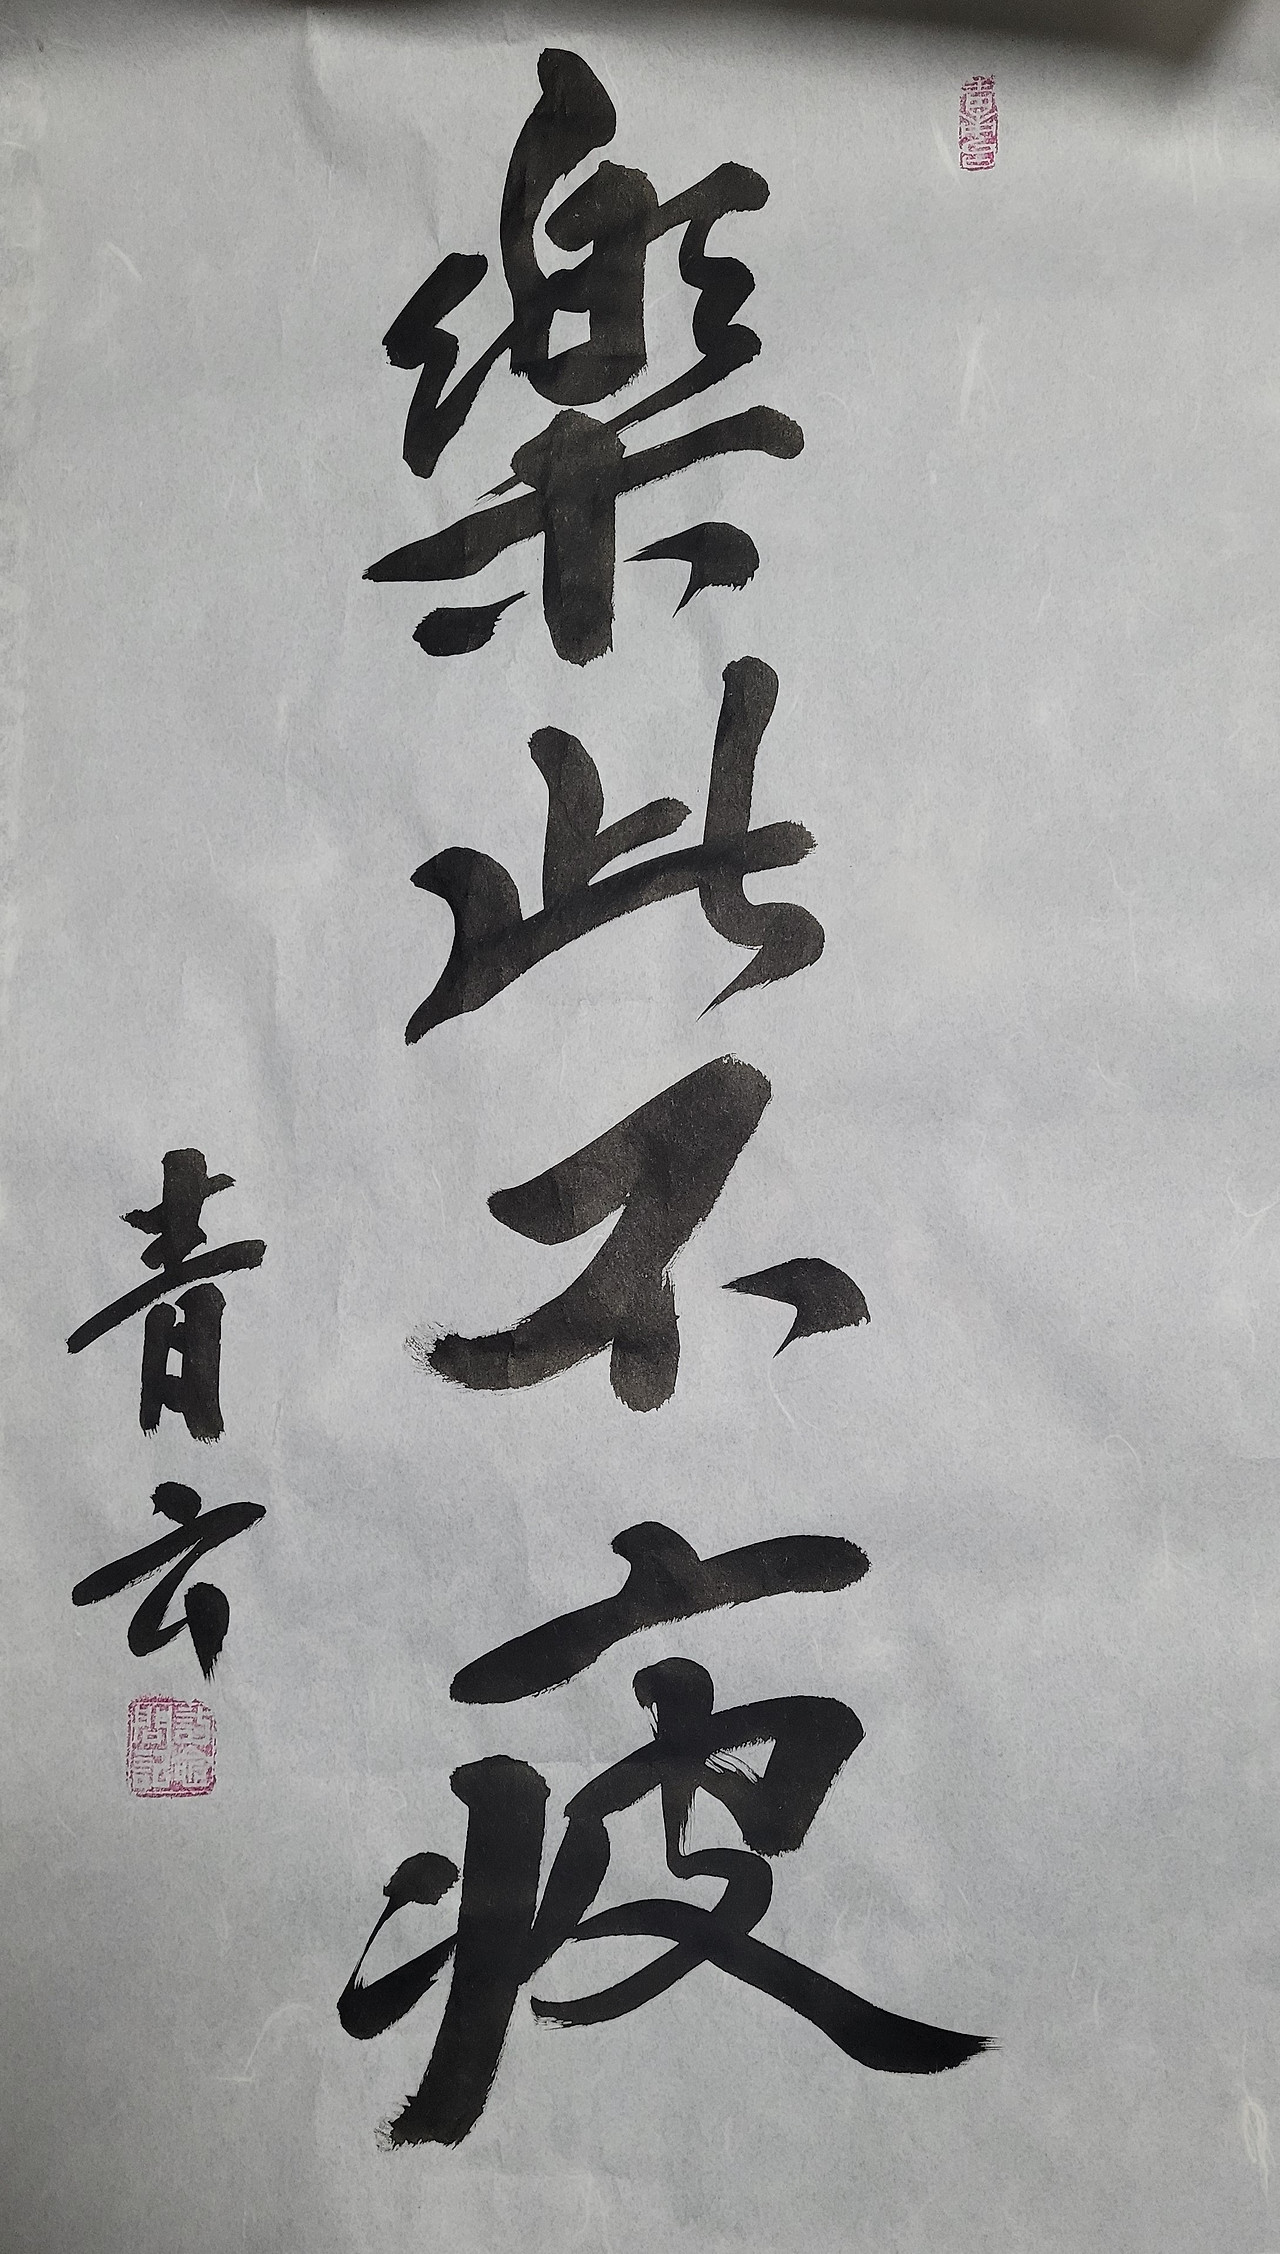 樂此不疲
青云